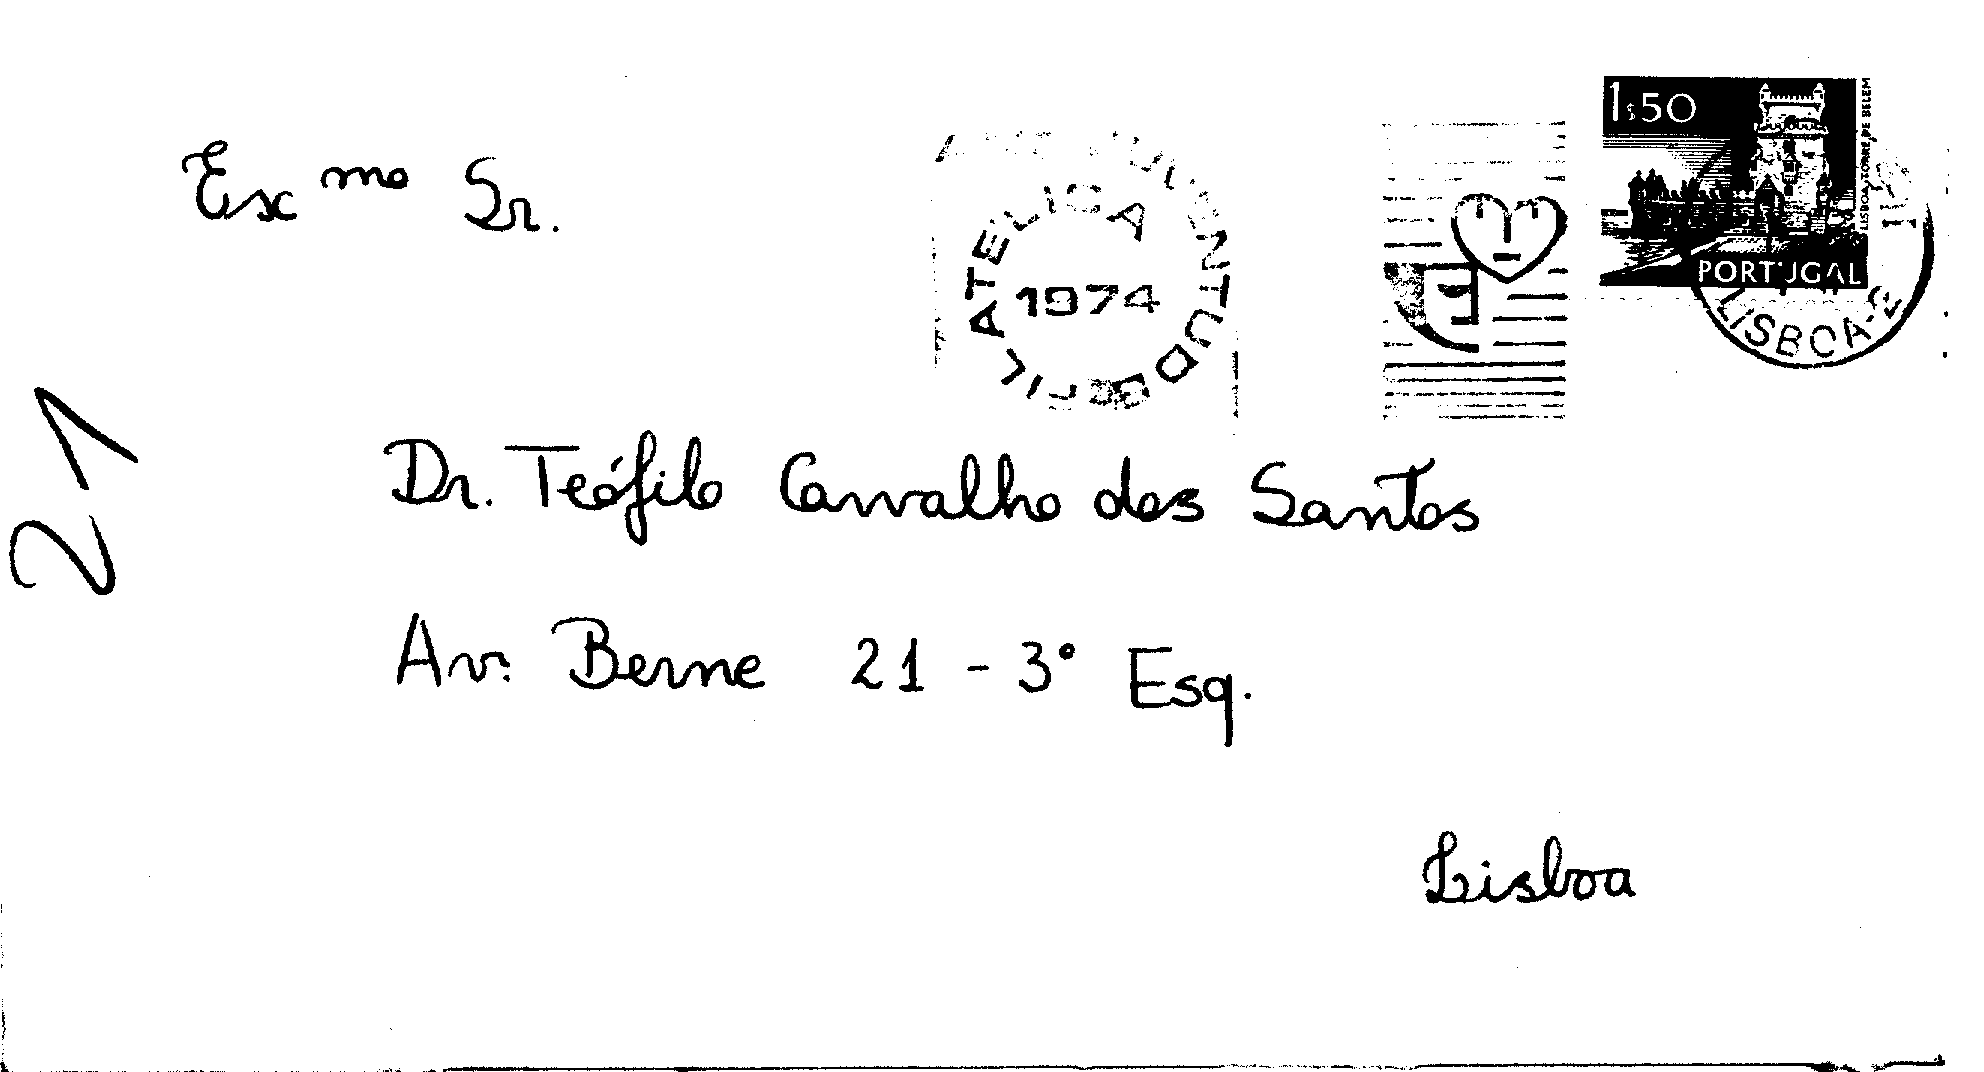 1$50
LISBOA·TORRE DE BELEM
PORTUGAL
LISBOA-2
JUVENTUDE FILATELICA
1974
Ex mo Sr.
21
Dr. Teófilo Carvalho dos Santos
Av. Berne 21 - 3º Esq.
Lisboa